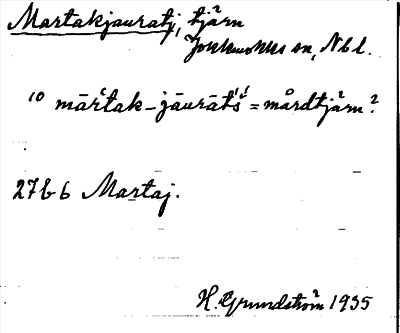 Martakjauratj, tjärn
Jokkmokks sn, Nbl.
10 mārtak-jāurāts = mårdtjärn?
27b6 Martaj.
H. Grundström 1935